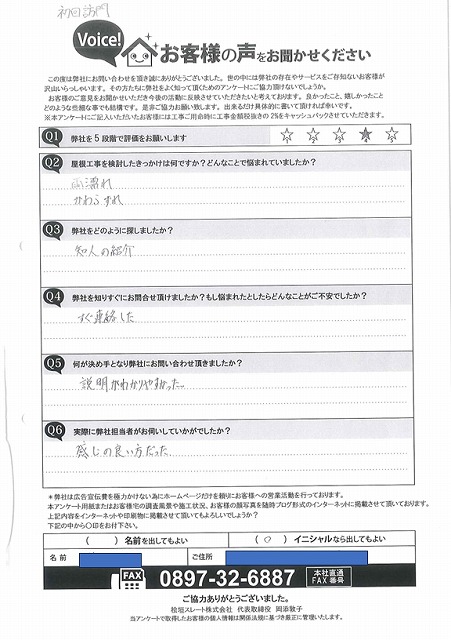 初回訪問
Voice!
お客様の声をお聞かせください
この度は弊社にお問い合わせを頂き誠にありがとうございます。世の中には弊社の存在やサービスをご存知ないお客様が
沢山いらっしゃいます。その方たちに弊社をよく知って頂くためのアンケートにご協力頂けないでしょうか。
お客様のご意見をお聞かせいただき今後の活動に反映させていただきたいと考えております。良かったこと、嬉しかったこと
どのような些細な事でも結構です。是非ご協力お願い致します。出来るだけ具体的に書いて頂ければ幸いです。
※本アンケートにご記入いただいたお客様には工事ご用命時に工事金額税抜きの2%をキャッシュバックさせていただきます。
Q1 弊社を5段階で評価をお願いします 1 2 3 4 5
Q2 屋根工事を検討したきっかけは何ですか?どんなことで悩まれていましたか?
雨漏れ
かわらずれ
Q3 弊社をどのように探しましたか?
知人の紹介
Q4 弊社を知りすぐにお問合せ頂けましたか?もし悩まれたとしたらどんなことがご不安でしたか?
すぐ連絡した
Q5 何が決め手となり弊社にお問い合わせ頂きましたか?
説明がわかりやすかった。
Q6 実際に弊社担当者がお伺いしていかがでしたか?
感じの良い方だった
*弊社は広告宣伝費を極力かけない為にホームページだけを頼りにお客様への営業活動を行っております。
本アンケート用紙またはお客様宅の調査風景や施工状況、お客様の顔写真を随時ブログ形式のインターネットに掲載させて頂いております。
上記内容をインターネットや印刷物に掲載させて頂いてもよろしいでしょうか?
下記の中から〇印をお付下さい。
( ) 名前を出してもよい ( ○ ) イニシャルなら出してもよい
名前 ご住所
FAX 0897-32-6887 本社直通 FAX番号
ご協力ありがとうございました。
桧垣スレート株式会社 代表取締役 岡添敦子
当アンケートで取得したお客様の個人情報は関係法規に基づき厳正に管理いたします。